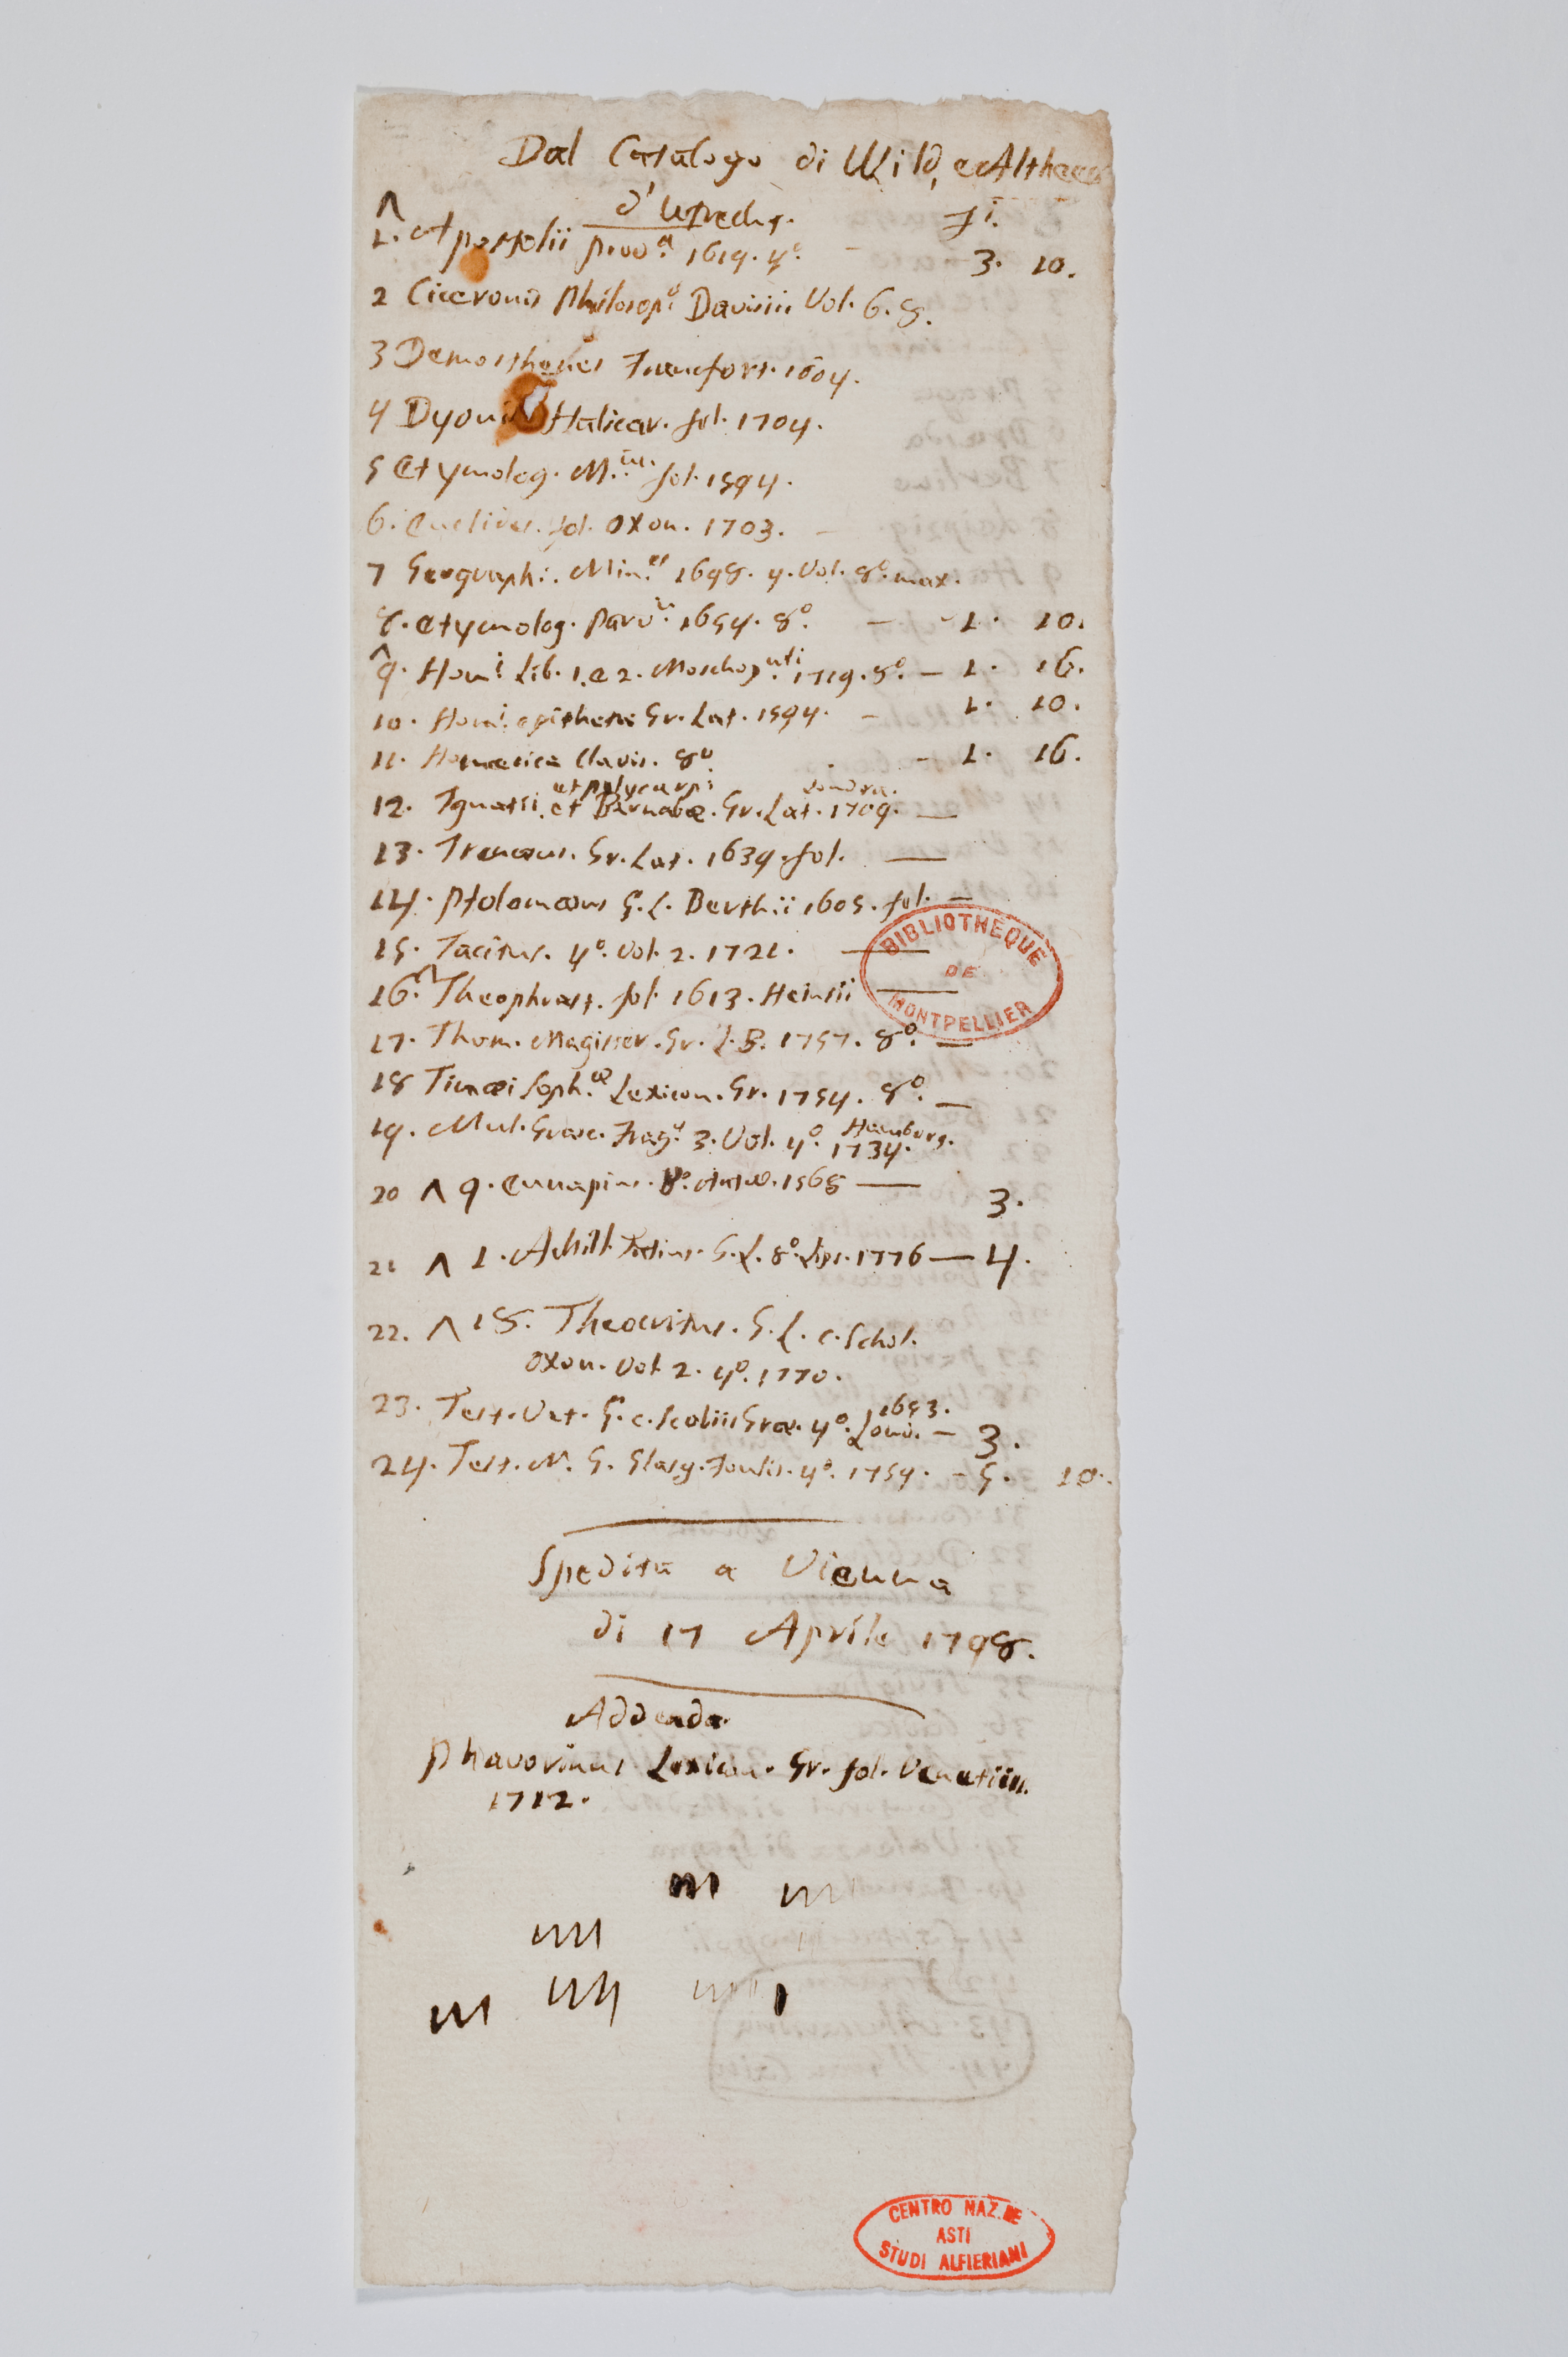 Dal Catalogo di Wild, e Altheer
d'Utrecht. fi.
^ 1. Apostolii prov.a 1619. 4.o - 3. 10.
2 Ciceronis Philosop.o Davisii Vol. 6. 8.
3 Demosthenes Francfort. 1604.
4 Dyonis Halicar. fol. 1704.
5 Etymolog. M. fol. 1594.
6. Euclides. fol. Oxon. 1703. -
7 Geographi. Min.es 1698. 4. Vol. 8.o max.
8. Etymolog. parv. 1654. 8.o - - 1. 10.
^ 9. Hom.i Lib. 1. e 2. Moschop.uli 1719. 8.o - 1. 16.
10. Hom.i epitheta Gr. Lat. 1594. - 1. 10.
11. Homerica Clavis. 8.o - 1. 16.
et Polycarpi Londra.
12. Ignatii. et Barnabæ. Gr. Lat. 1709. —
13. Irenæus. Gr. Lat. 1639. fol. —
14. Ptolomæus G. L. Berthii 1605. fol. —
15. Tacitus. 4.o Vol. 2. 1721. —
16. ^ Theophrast. fol. 1613. Heinsii —
17. Thom. Magister. Gr. L. B. 1757. 8.o —
18 Timæi Soph.æ Lexicon. Gr. 1754. 8.o —
19. Mul. Græc. Frag. 3. Vol. 4.o Hamburg. 1734.
20 ^ 9. Eunapius. 8.o Antw. 1568 — 3.
21 ^ 1. Achill. Tatius. G. L. 8.o Lips. 1776 — 4.
22. ^ 18. Theocritus. G. L. c. Schol.
Oxon. Vol 2. 4.o 1770.
23. Test. Vet. G. c. Scoliis Græ. 4.o Lond. 1653. - 3.
24. Test. N. G. Glasg. Foulis. 4.o 1754. - 5. 10.
Spedita a Vienna
di 17 Aprile 1798.
Addenda.
Phavorinus Lexicon. Gr. fol. Venetiis.
1712.
BIBLIOTHEQUE
DE
MONTPELLIER
CENTRO NAZ. DE
ASTI
STUDI ALFIERIANI